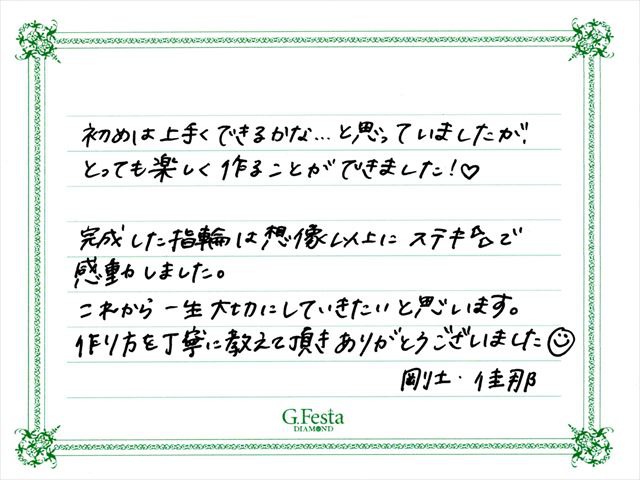 初めは上手くできるかな…と思っていましたが、
とっても楽しく作ることができました!♡
完成した指輪は想像以上にステキ☆で
感動しました。
これから一生大切にしていきたいと思います。
作り方を丁寧に教えて頂きありがとうございました☺
剛士・佳那
G.Festa
DIAMOND